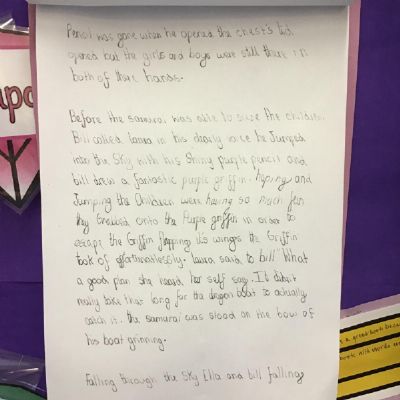 Pencil was gone when he opened the chest's lid
opened but the girls and boys were still there in
both of there hands.
Before the samurai was able to the children
Bill called Laura in his voice he Jumped
into the Sky with his Shiny purple pencil and
bill drew a fantastic purple griffin. and
Jumping the Children were having so much fun
they onto the Purple griffin in order to
escape the Griffin flapping it's wings the Griffin
took of effortlessly. Laura said to bill" What
a good plan she heard her self say. It didn't
really take that long for the dragon boat to actually
catch it. the samurai was stood on the bow of
his boat grinning.
Falling through the sky Ella and bill falling